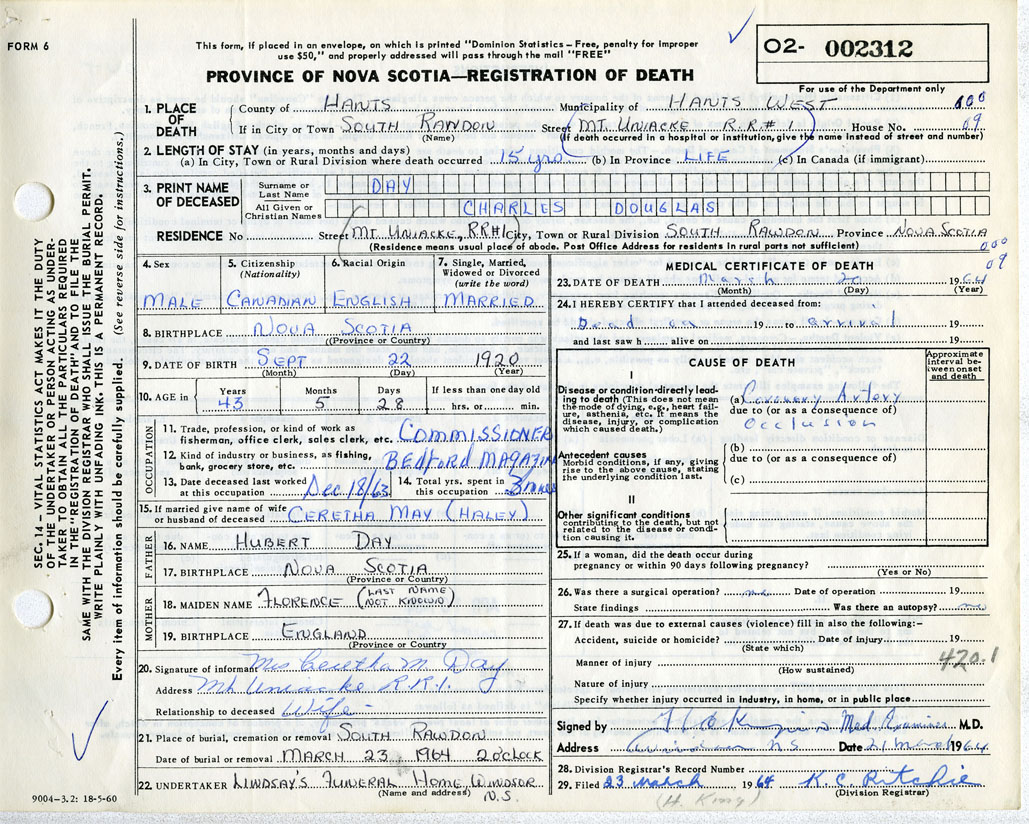 FORM 6
This form, if placed in an envelope, on which is printed "Dominion Statistics – Free, penalty for improper
use $50," and properly addressed will pass through the mail "FREE"
PROVINCE OF NOVA SCOTIA—REGISTRATION OF DEATH
02- 002312
For use of the Department only
1. PLACE OF DEATH County of HANTS Municipality of HANTS WEST 000
If in City or Town SOUTH RAWDON Street MT. UNIACKE R.R #1 House No. 09
(Name) (If death occurred in hospital or institution, give the name instead of street and number)
2. LENGTH OF STAY (in years, months and days)
(a) In City, Town or Rural Division where death occurred 15 yrs (b) In Province LIFE (c) In Canada (if immigrant)
3. PRINT NAME OF DECEASED Surname or Last Name DAY
All Given or Christian Names CHARLES DOUGLAS
RESIDENCE No Street MT UNIACKE, RR#1 City, Town or Rural Division SOUTH RAWDON Province NOVA SCOTIA
(Residence means usual place of abode. Post Office Address for residents in rural parts not sufficient) 000
09
4. Sex 5. Citizenship (Nationality) 6. Racial Origin 7. Single, Married, Widowed or Divorced (write the word)
MALE CANADIAN ENGLISH MARRIED
8. BIRTHPLACE NOVA SCOTIA
((Province or Country)
9. DATE OF BIRTH SEPT 22 1920
(Month) (Day) (Year)
10. AGE in Years 43 Months 5 Days 28 If less than one day old hrs. or min.
OCCUPATION
11. Trade, profession, or kind of work as
fisherman, office clerk, sales clerk, etc. COMMISSIONER
12. Kind of industry or business, as fishing,
bank, grocery store, etc. BEDFORD MAGAZINE
13. Date deceased last worked at this occupation Dec 18/63 14. Total yrs. spent in this occupation 3
15. If married give name of wife
or husband of deceased CERETHA MAY (HALEY)
FATHER
16. NAME HUBERT DAY
17. BIRTHPLACE NOVA SCOTIA
(Province or Country)
MOTHER
18. MAIDEN NAME FLORENCE (LAST NAME NOT KNOWN)
19. BIRTHPLACE ENGLAND
(Province or Country
20. Signature of informant Mrs Ceretha M. Day
Address Mt Uniacke R.R.1.
Relationship to deceased Wife
21. Place of burial, cremation or removal SOUTH RAWDON
Date of burial or removal MARCH 23 1964 2 O'CLOCK
22. UNDERTAKER LINDSAY'S FUNERAL HOME WINDSOR
(Name and address) N.S.
9004–3.2: 18-5-60
MEDICAL CERTIFICATE OF DEATH
23. DATE OF DEATH March 20 1964
(Month) (Day) (Year)
24. I HEREBY CERTIFY that I attended deceased from:
Dead on 19 to arrival 19
and last saw h alive on 19
CAUSE OF DEATH
Approximate interval between onset and death
I
Disease or condition directly leading to death (This does not mean the mode of dying, e.g., heart failure, asthenia, etc. It means the disease, injury, or complication which caused death.)
(a) Coronary Artery
due to (or as a consequence of)
Occlusion
Antecedent causes
Morbid conditions, if any, giving rise to the above cause, stating the underlying condition last.
(b)
due to (or as a consequence of)
(c)
II
Other significant conditions
contributing to the death, but not related to the disease or condition causing it.
25. If a woman, did the death occur during
pregnancy or within 90 days following pregnancy?
(Yes or No)
26. Was there a surgical operation? no Date of operation 19
State findings Was there an autopsy? no
27. If death was due to external causes (violence) fill in also the following:–
Accident, suicide or homicide? Date of injury 19
(State which)
Manner of injury 420.1
(How sustained)
Nature of injury
Specify whether injury occurred in industry, in home, or in public place
Signed by Med Examiner M.D.
Address Windsor N.S Date 21 March 1964
28. Division Registrar's Record Number
29. Filed 23 March 1964 K.C. Ritchie
(H. King) (Division Registrar)
SEC. 14 – VITAL STATISTICS ACT MAKES IT THE DUTY
OF THE UNDERTAKER OR PERSON ACTING AS UNDER-
TAKER TO OBTAIN ALL THE PARTICULARS REQUIRED
IN THE "REGISTRATION OF DEATH" AND TO FILE THE
SAME WITH THE DIVISION REGISTRAR WHO SHALL ISSUE THE BURIAL PERMIT.
WRITE PLAINLY WITH UNFADING INK. THIS IS A PERMANENT RECORD.
Every item of information should be carefully supplied. (See reverse side for instructions.)